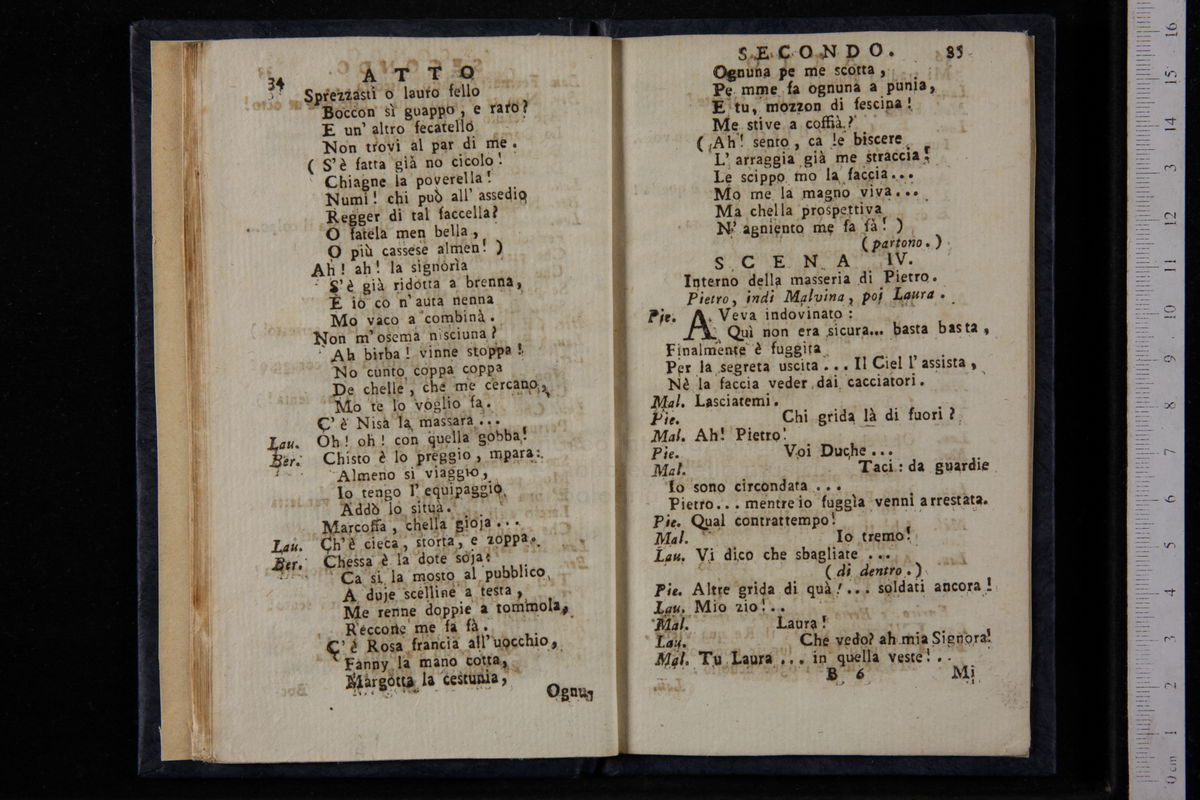 34 ATTO
Sprezzasti o lauro fello
Boccon sì guappo, e raro?
E un' altro fecatello
Non trovi al par di me.
( S'è fatta già no cicolo!
Chiagne la poverella!
Numi! chi può all' assedio
Regger di tal faccella?
O fatela men bella,
O più cassese almen! )
Ah! ah! la signorìa
S'è già ridotta a brenna,
E io co n'auta nenna
Mo vaco a combinà.
Non m'osema nisciuna?
Ah birba! vinne stoppa!
No cunto coppa coppa
De chelle, che me cercano,
Mo te lo voglio fa.
C'è Nisa la massara...
Lau. Oh! oh! con quella gobba!
Ber. Chisto è lo preggio, mpara:
Almeno si viaggio,
Io tengo l'equipaggio
Addò lo situà.
Marcoffa, chella gioja...
Lau. Ch'è cieca, storta, e zoppa.
Ber. Chessa è la dote soja:
Ca si la mosto al pubblico,
A duje scelline a testa,
Me renne doppie a tommola,
Reccone me fa fà.
C'è Rosa francia all'uocchio,
Fanny la mano cotta,
Margotta la cestunia,
Ognu-
SECONDO. 35
Ognuna pe me scotta,
Pe mme fa ognuna a punia,
E tu, mozzon di fescina!
Me stive a coffià?
( Ah! sento, ca le biscere
L'arraggia già me straccia:
Le scippo mo la faccia...
Mo me la magno viva...
Ma chella prospettiva
N'agniento me fa fà! )
(partono.)
SCENA IV.
Interno della masseria di Pietro.
Pietro, indi Malvina, poi Laura.
Pie. AVeva indovinato:
Quì non era sicura... basta basta,
Finalmente è fuggita
Per la segreta uscita... Il Ciel l'assista,
Nè la faccia veder dai cacciatori.
Mal. Lasciatemi.
Pie. Chi grida là di fuori?
Mal. Ah! Pietro!
Pie. Voi Duche...
Mal. Taci: da guardie
Io sono circondata...
Pietro... mentre io fuggìa venni arrestata.
Pie. Qual contrattempo!
Mal. Io tremo!
Lau. Vi dico che sbagliate...
(di dentro.)
Pie. Altre grida di quà!... soldati ancora!
Lau. Mio zio!..
Mal. Laura!
Lau. Che vedo? ah mia Signora!
Mal. Tu Laura... in quella veste!..
B 6 Mi